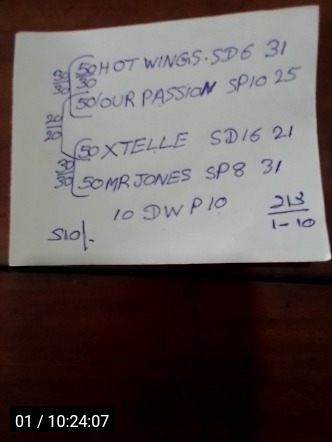 50 HOT WINGS. SD6 31
50 OUR PASSION SP10 25
50 XTELLE SD16 21
50 MR JONES SP8 31
10 DW P10
213
1-10
510/-
01 / 10:24:07